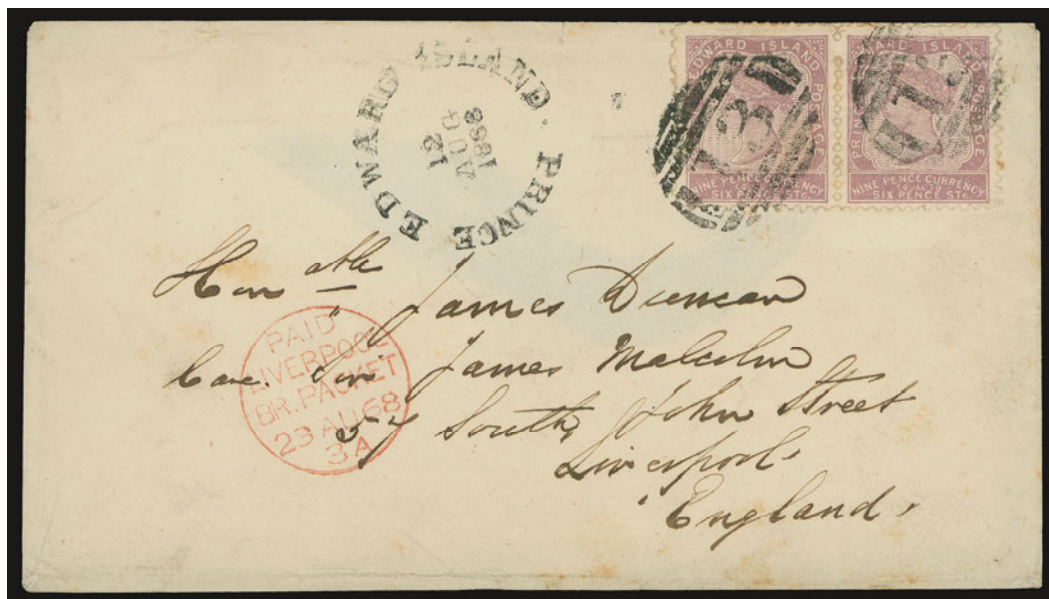 PRINCE EDWARD ISLAND.
12
AUG
1868
EDWARD ISLAND POSTAGE
13
NINE PENCE CURRENCY
SIX PENCE STG.
PRINCE EDWARD ISLAND POSTAGE
13
NINE PENCE CURRENCY
EQUAL TO
SIX PENCE STG.
Honble James Duncan
Care. James Malcolm
57 South John Street
Liverpool.
England.
PAID
LIVERPOOL
BR. PACKET
23 AU 68
3A